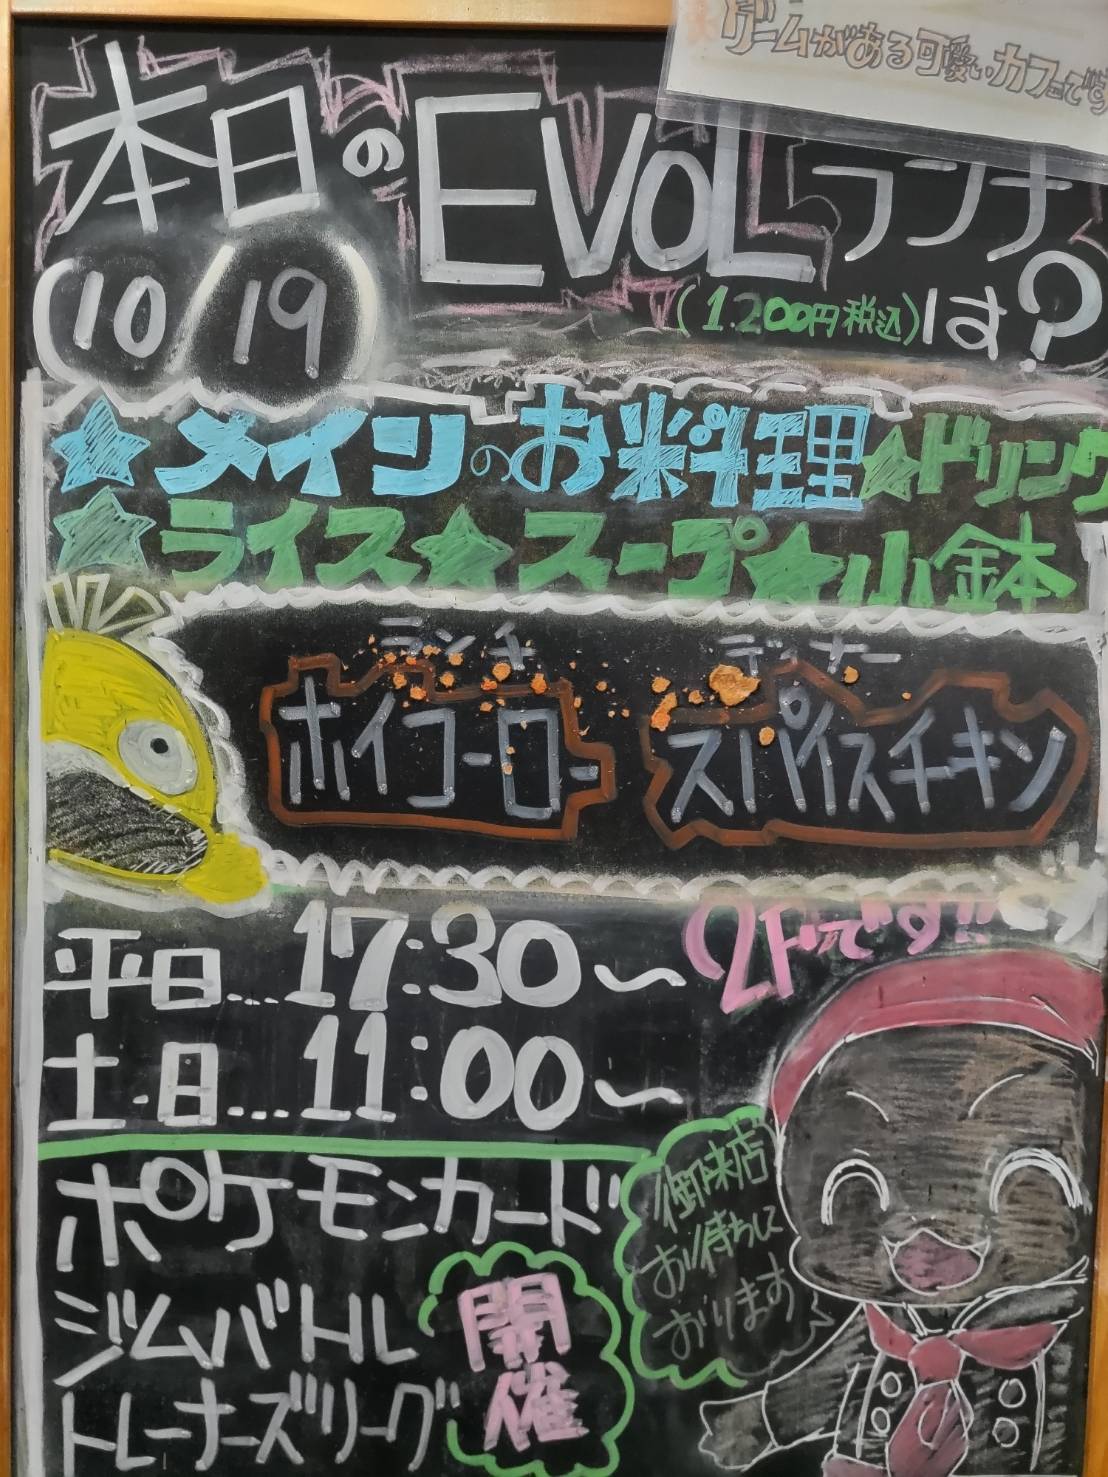 ゲームがある可愛いカフェです
本日のEVOLランチ
(10/19
(1.200円税込)は?
★メインのお料理★ドリンク
★ライス★スープ★小鉢
ランチ
ホイコーロー
ディナー
スパイスチキン
2Fです!!
平日...17:30〜
土・日...11:00〜
ポケモンカード
ジムバトル
トレーナーズリーグ
開催
御来店
お待ちして
おります